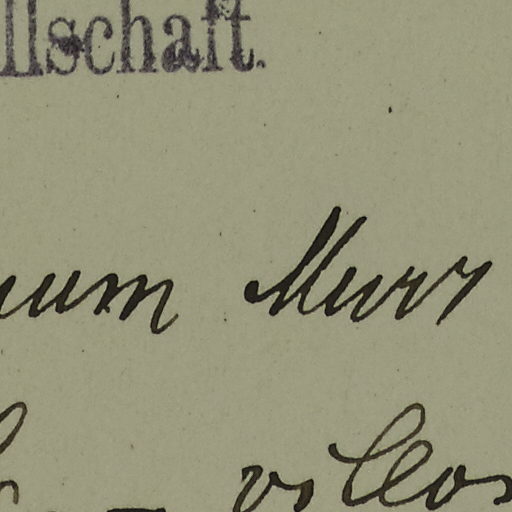 llschaft.
num Murr
villos